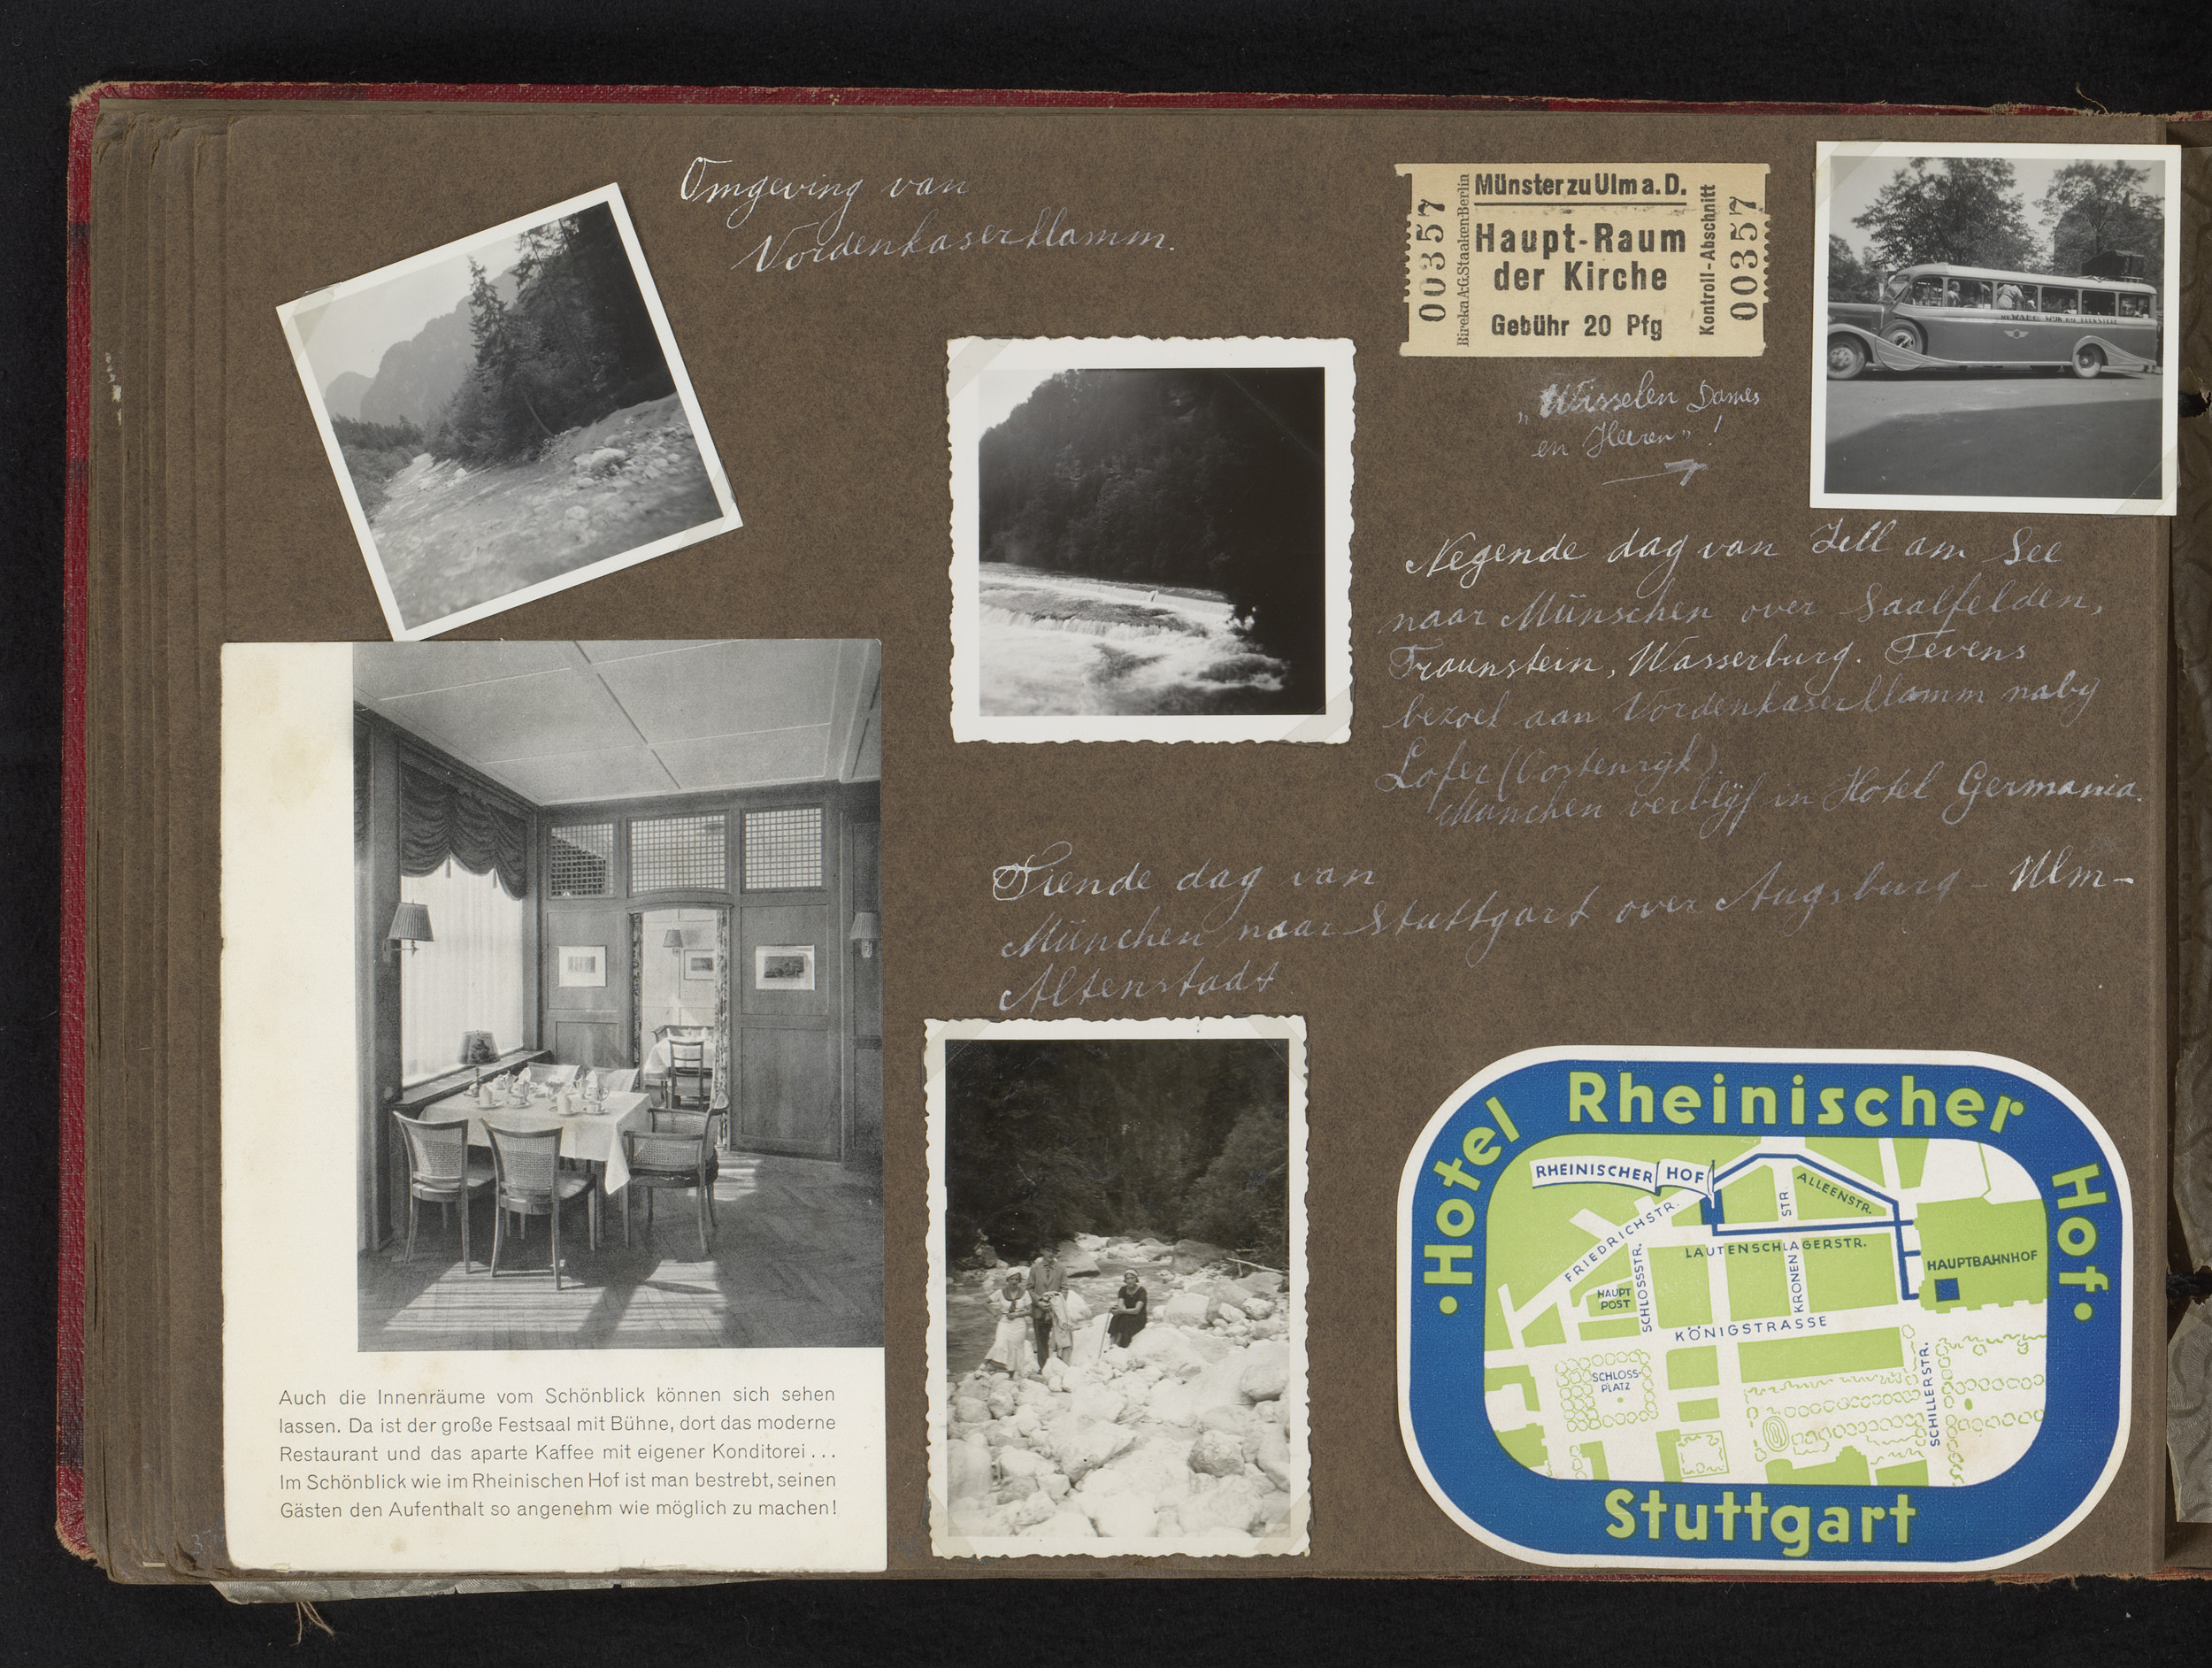 Omgeving van
Vordenkaserklamm.
00357
Bireka A.G. Staaken Berlin
Münster zu Ulm a. D.
Haupt-Raum
der Kirche
Gebühr 20 Pfg
Kontroll-Abschnitt
00357
„Wisselen Dames
en Heeren" !
Negende dag van Zell am See
naar Münschen over Saalfelden,
Traunstein, Wasserburg. Tevens
bezoek aan Vordenkaserklamm naby
Lofer (Oostenryk)
München verblÿf in Hotel Germania.
Tiende dag van
München naar Stuttgart over Augsburg - Ulm -
Altenstadt
Auch die Innenräume vom Schönblick können sich sehen
lassen. Da ist der große Festsaal mit Bühne, dort das moderne
Restaurant und das aparte Kaffee mit eigener Konditorei . . .
Im Schönblick wie im Rheinischen Hof ist man bestrebt, seinen
Gästen den Aufenthalt so angenehm wie möglich zu machen!
• Hotel Rheinischer Hof •
RHEINISCHER HOF
ALLEENSTR.
STR.
FRIEDRICHSTR.
LAUTENSCHLAGERSTR.
HAUPTBAHNHOF
SCHLOSSSTR.
KRONEN
HAUPT
POST
KÖNIGSTRASSE
SCHLOSS-
PLATZ
SCHILLERSTR.
Stuttgart